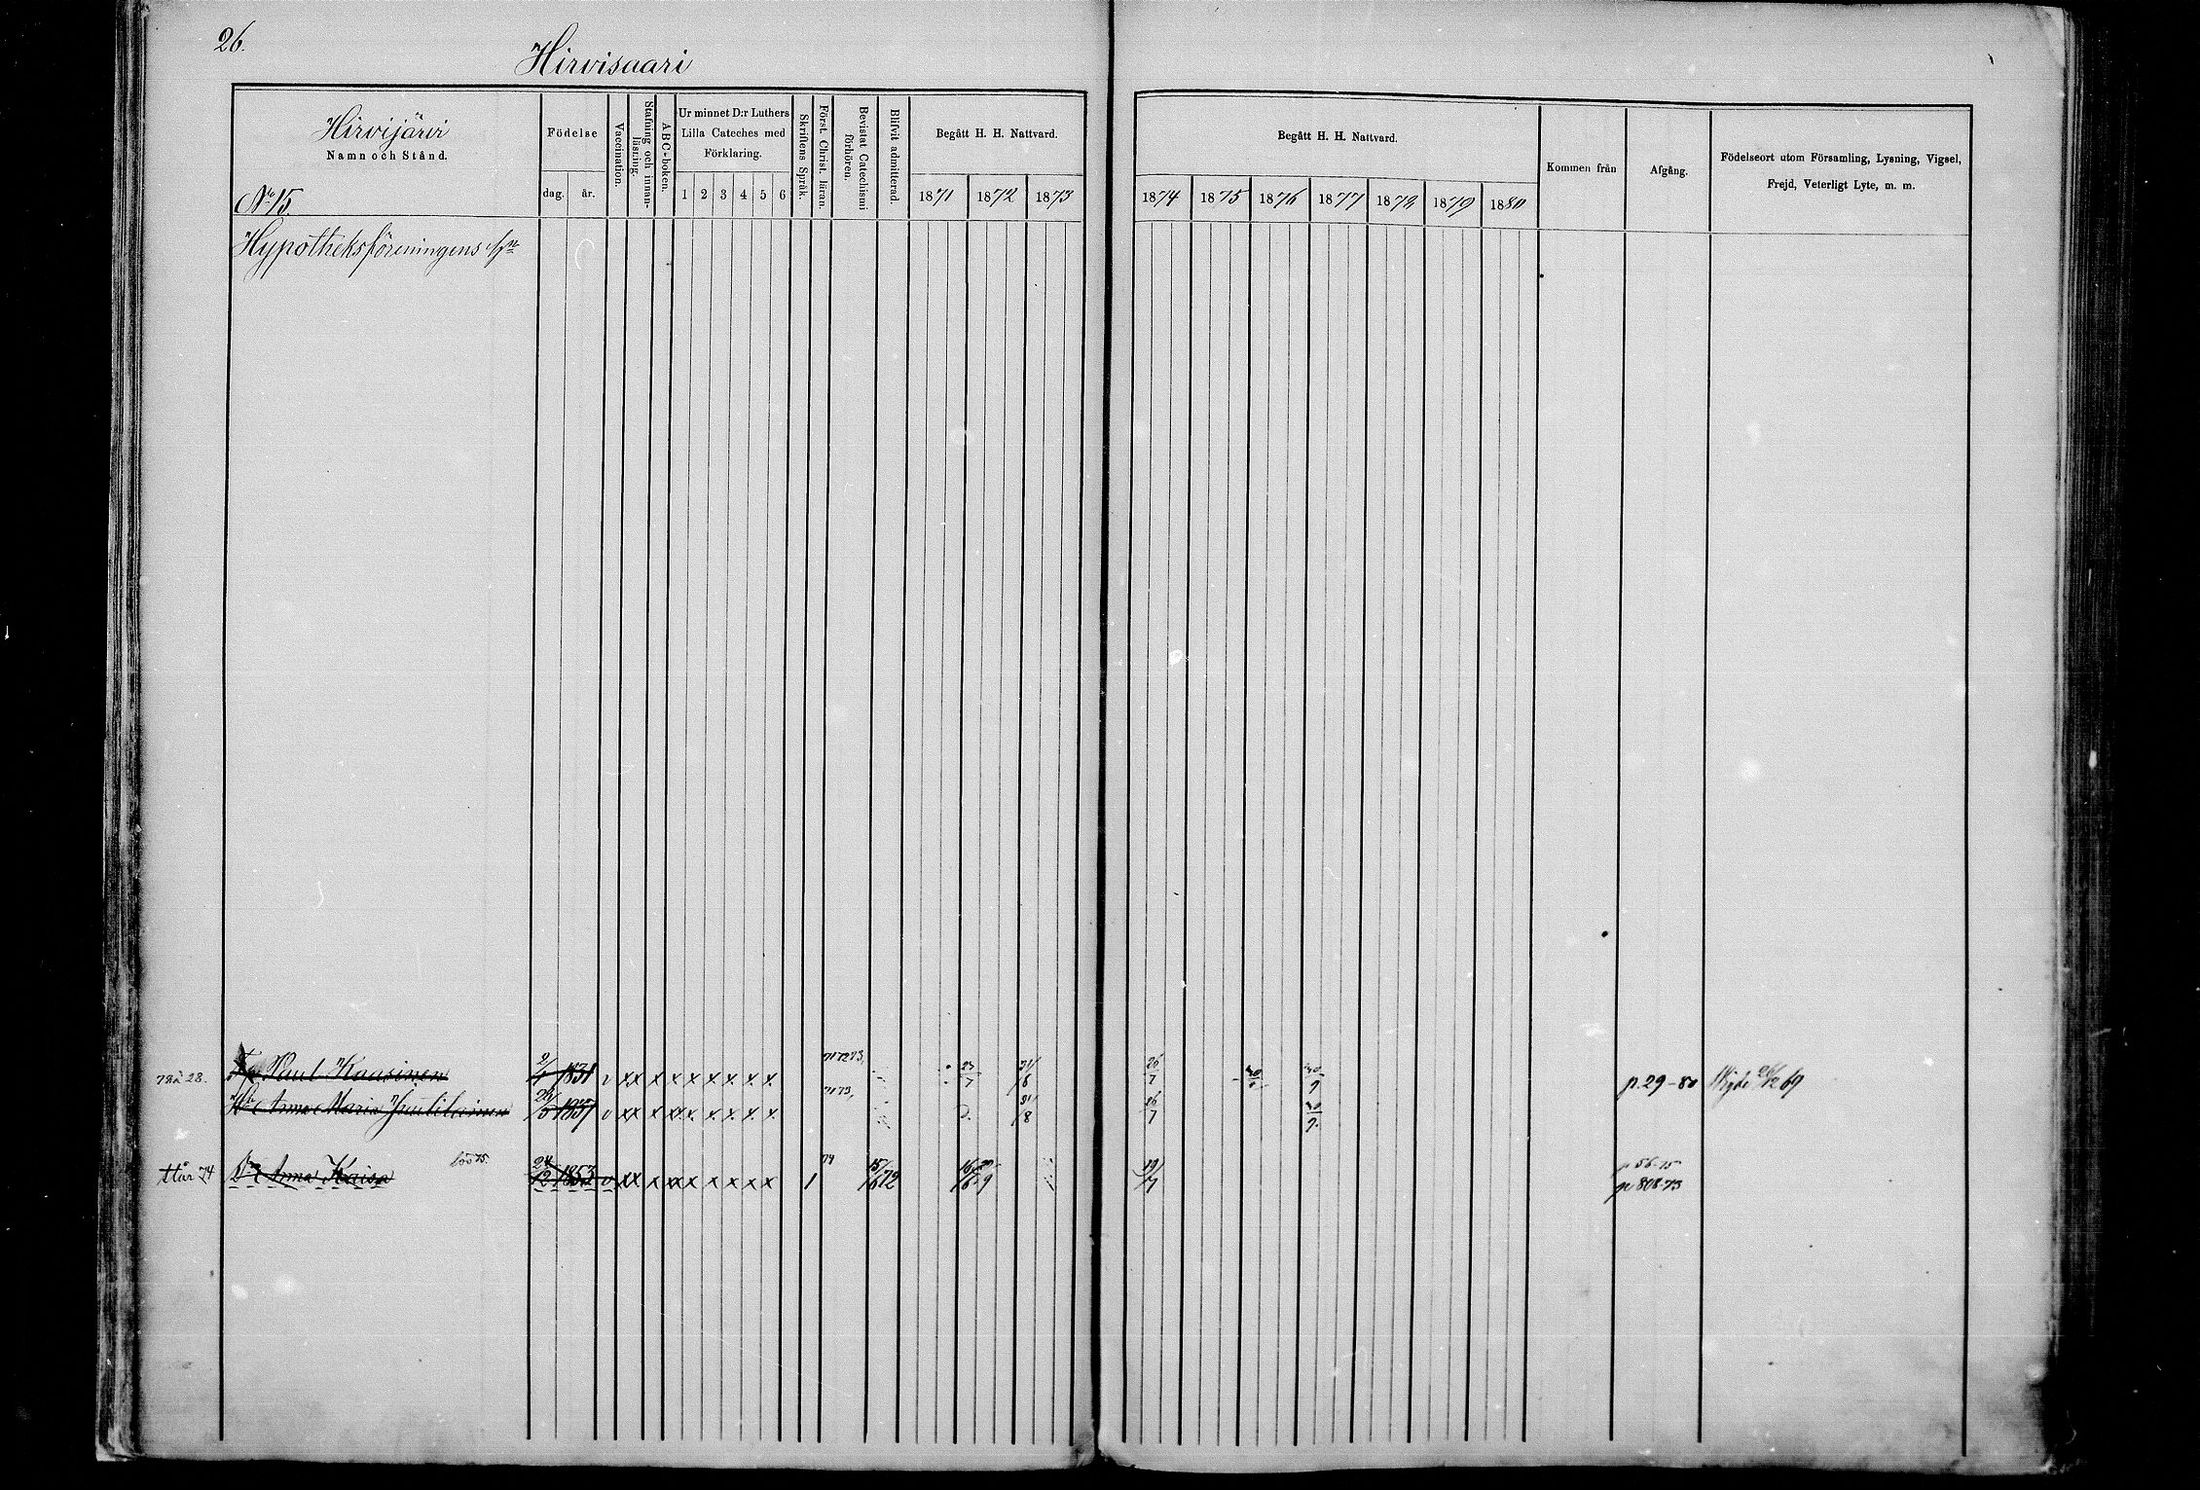 26.
Hirvisaari
Hirvijärvi
Namn och Stånd.
No 15.
Födelse
dag. år.
Vaccination.
Stafning och innanläsning.
ABC-boken.
Ur minnet D:r Luthers
Lilla Cateches med
Förklaring.
1 2 3 4 5 6
Skriftens Språk.
Först. Christ. läran.
Bevistat Catechismi förhören.
Blifvit admitterad.
Begått H. H. Nattvard.
1871 1872 1873
Begått H. H. Nattvard.
1874 1875 1876 1877 1878 1879 1880
Kommen från
Afgång.
Födelseort utom Församling, Lysning, Vigsel,
Frejd, Veterligt Lyte, m. m.
Hypotheksföreningens
Paul Kaasinen 2/4 1831 v xx x x x x x x x 71 72 73 23/7 31/8 26/7 30/9 p. 29-80 Vigde 26/12 69
Hu Anna Maria 1837 v xx x x x x x x x 71 73 31/8 26/7 30/9
ttär 74 Dr Anna Kaisa 24/12 1853 v xx x x x x x x x 1 74 15/6 72 19/7 p 56-75
p 808-73